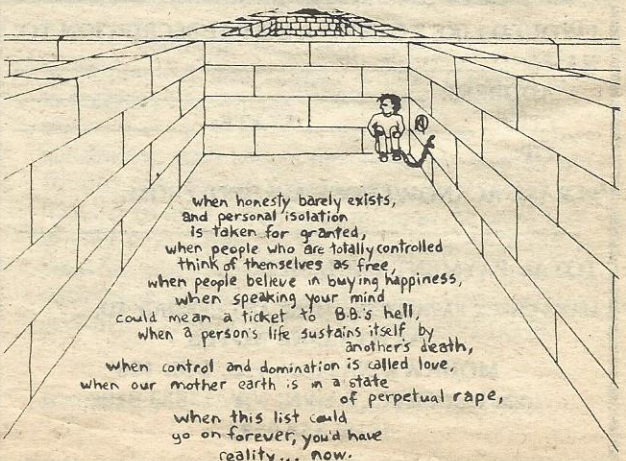 when honesty barely exists,
and personal isolation
is taken for granted,
when people who are totally controlled
think of themselves as free,
when people believe in buying happiness,
when speaking your mind
could mean a ticket to B.B.'s hell,
when a person's life sustains itself by
another's death,
when control and domination is called love,
when our mother earth is in a state
of perpetual rape,
when this list could
go on forever, you'd have
reality... now.